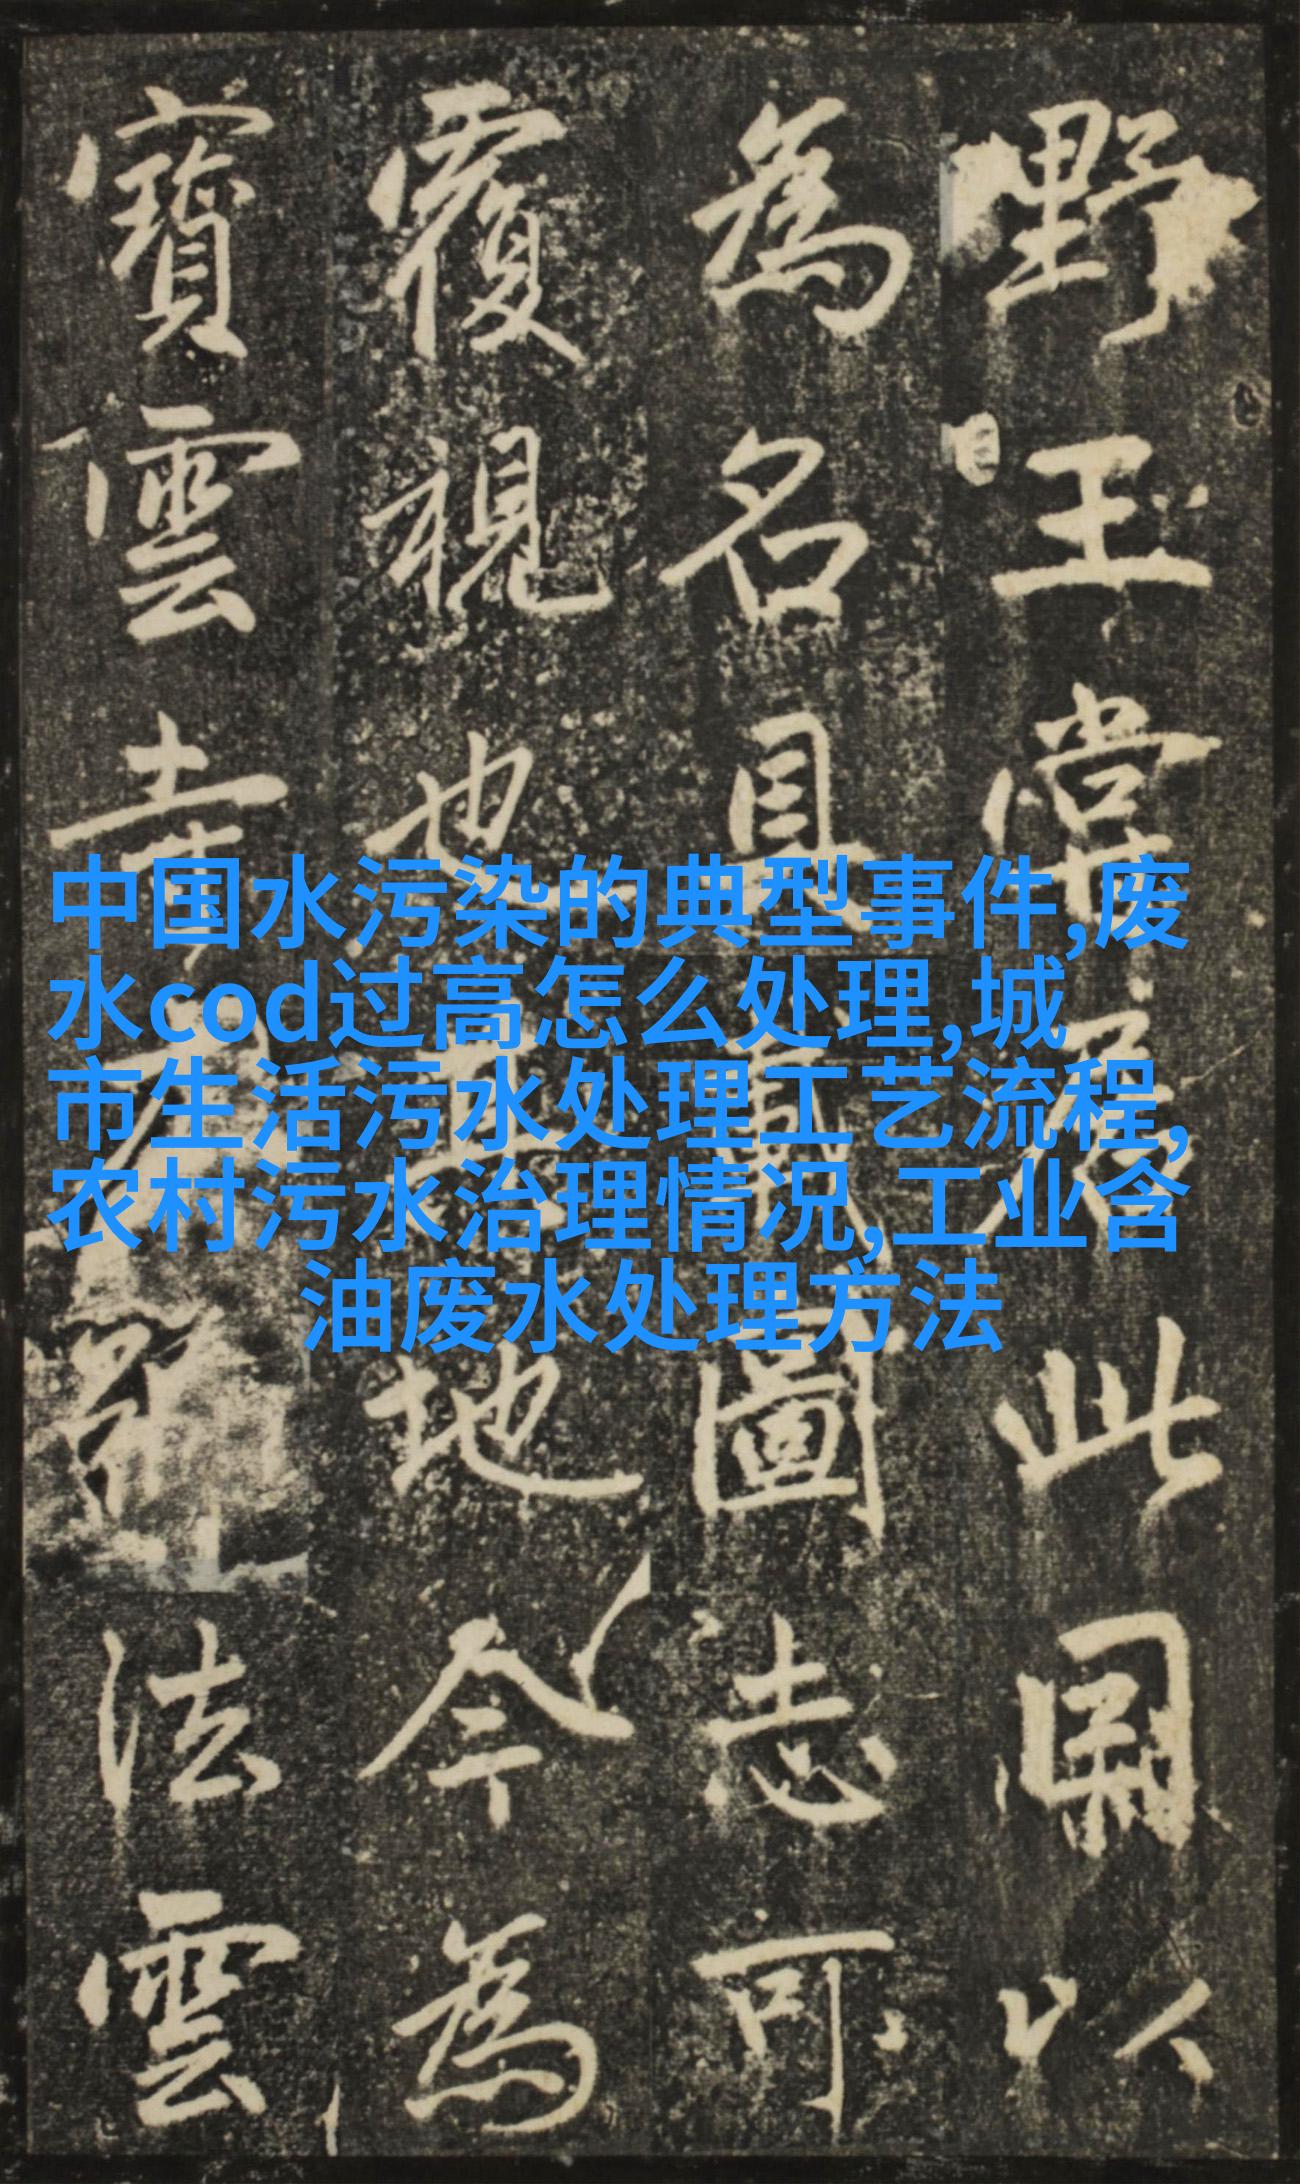 野王常居此以
為名具載圖志可
覆視也其地今為
寶雲寺法雲
中国水污染的典型事件,废
水cod过高怎么处理,城
市生活污水处理工艺流程,
农村污水治理情况,工业含
油废水处理方法